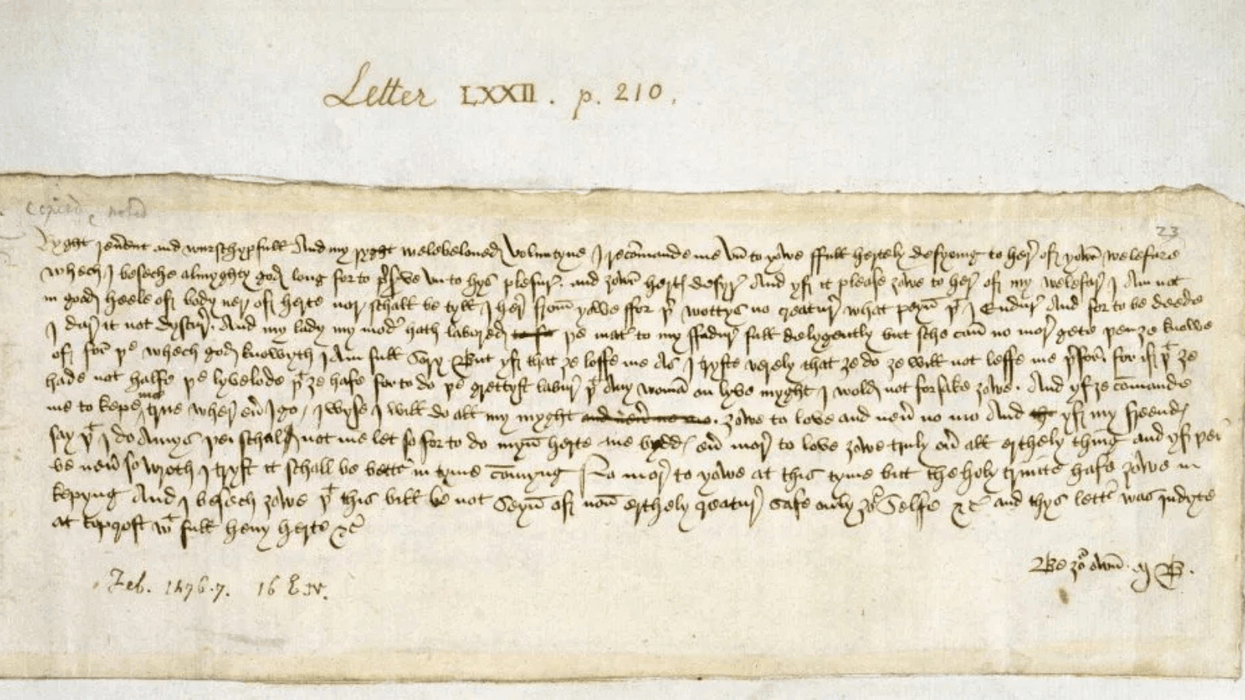 Letter LXXII. p. 210.
copied noted
23
Ryght reṽent and wurschypfull And my ryght welebeloued Voluntyne I recõmande me vn to yowe ffull hertely desyring to her̃ of yowr̃ welefare
whech I beseche almyghty god long for to p̃s̃ve vn to hys plesur̃ . and zowr̃ hertys desyr̃ And yf it please zowe to her̃ of my welefar̃ I Am not
in good heele of body ner of herte nor schall be tyll I her̃ from yowe ffor þ̃ wottys no creatur̃ what peyn̄ þ̃ I Endur̃ And for to be deede
I dar̃ it not dyscur̃ . And my lady my mod̃ hath labored þe mat̃ to my ffadur̃ full delygently but sche can no mor̃ gete þen ze knowe
of for þe whech god knowyth I Am full sory But yf that ze loffe me As I tryste verely that ze do ze will not leffe me þ̃for̃ . for if þ̃ ze
hade not halfe þe lyvelode þ̃ ze hafe for to do þe grettyst labur̃ þ̃ Any woman on lyve myght I wold not forsake zowe . And yf ze cõmande
me to kepe me trwe wher eṽ I go / I wyse I will do all my myght zowe to love and neṽ no mo And yf my freend
say þ̃ I do Amys þei schal not me let so for to do myn̄ herte me bydd eṽ mor̃ to love zowe truly oṽ all erthely thing And yf þei
be neṽ so wroth I tryst it schall be bett̃ in tyme cõmyng No mor̃ to yowe at this tyme but the holy trinite hafe zowe in
kepyng And I besech zowe þ̃ this bill be not seyn̄ of non̄ erthely creatur̃ safe only zor̃ Selfe &c̃ and thys lett̃ was indyte
at topcroft wt full heuy herte &c̃
Be zor̃ own̄ . M B .
Feb. 1476.7. 16 E. IV.